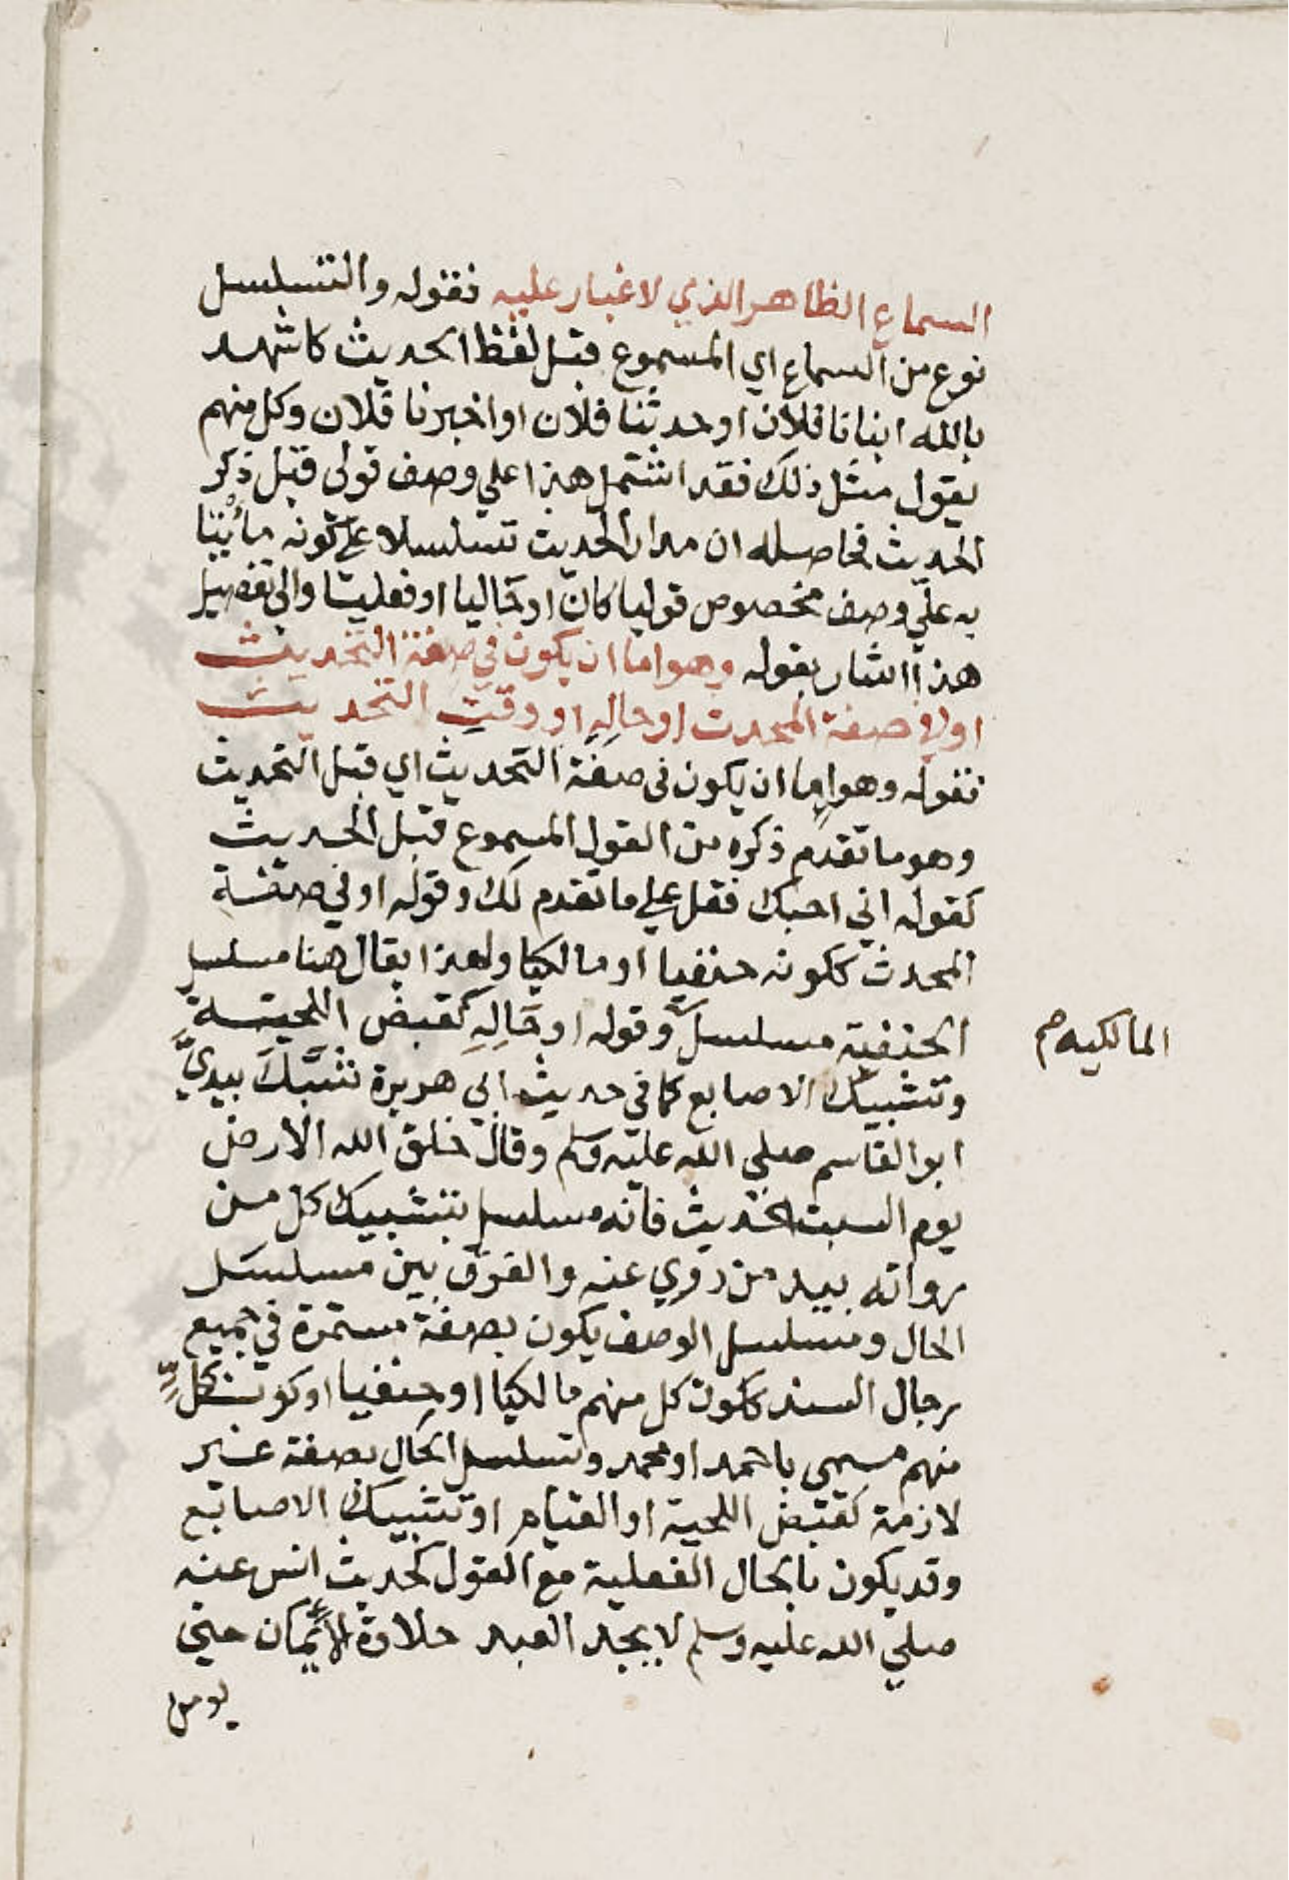 السماع الظاهر الذي لا غبار عليه فقوله والتسلسل
نوع من السماع اي المسموع قبل لفظ الحديث كاشهد
بالله انبانا فلان او حدثنا فلان او اخبرنا فلان وكل منهم
يقول مثل ذلك فقد اشتمل هذا علي وصف قولى قبل ذكر
الحديث فحاصله ان مدار الحديث تسلسلا على كونه ماتيا
به علي وصف مخصوص قوليا كان او حاليا او فعليا والى تفصيل
هذا اشار بقوله وهو اما ان يكون في صفة التحديث
اولا في صفة المحدث او حاله او وقت التحديث
فقوله وهو اما ان يكون فى صفة التحديث اي قبل التحديث
وهو ما تقدم ذكره من القول المسموع قبل الحديث
كقوله اني احبك فقل علي ما تقدم لك وقوله او في صفة
المحدث ككونه حنفيا او مالكيا ولهذا يقال هنا مسلسل
الحنفية مسلسل وقوله او حَالِهِ كقبض اللحية
المالكيه م
وتشبيك الاصابع كما في حديث ابي هريرة شبَّكَ بيديَّ
ابو القاسم صلي الله عليه وسلم وقال خلق الله الارض
يوم السبت الحديث فانه مسلسل بتشبيك كل من
رواته بيد من روي عنه والفرق بين مسلسل
الحال ومسلسل الوصف يكون بصفة مستمرة في جميع
رجال السند ككون كل منهم مالكيا او حنفيا او كون كلٍّ
منهم مسمى باحمد او محمد وتسلسل الحال بصفة غير
لازمة كقبض اللحية او القيام او تشبيك الاصابع
وقد يكون بالحال الفعلية مع القول كحديث انس عنه
صلي الله عليه وسلم لا يجد العبد حلاوة الايمان حتي
يومن